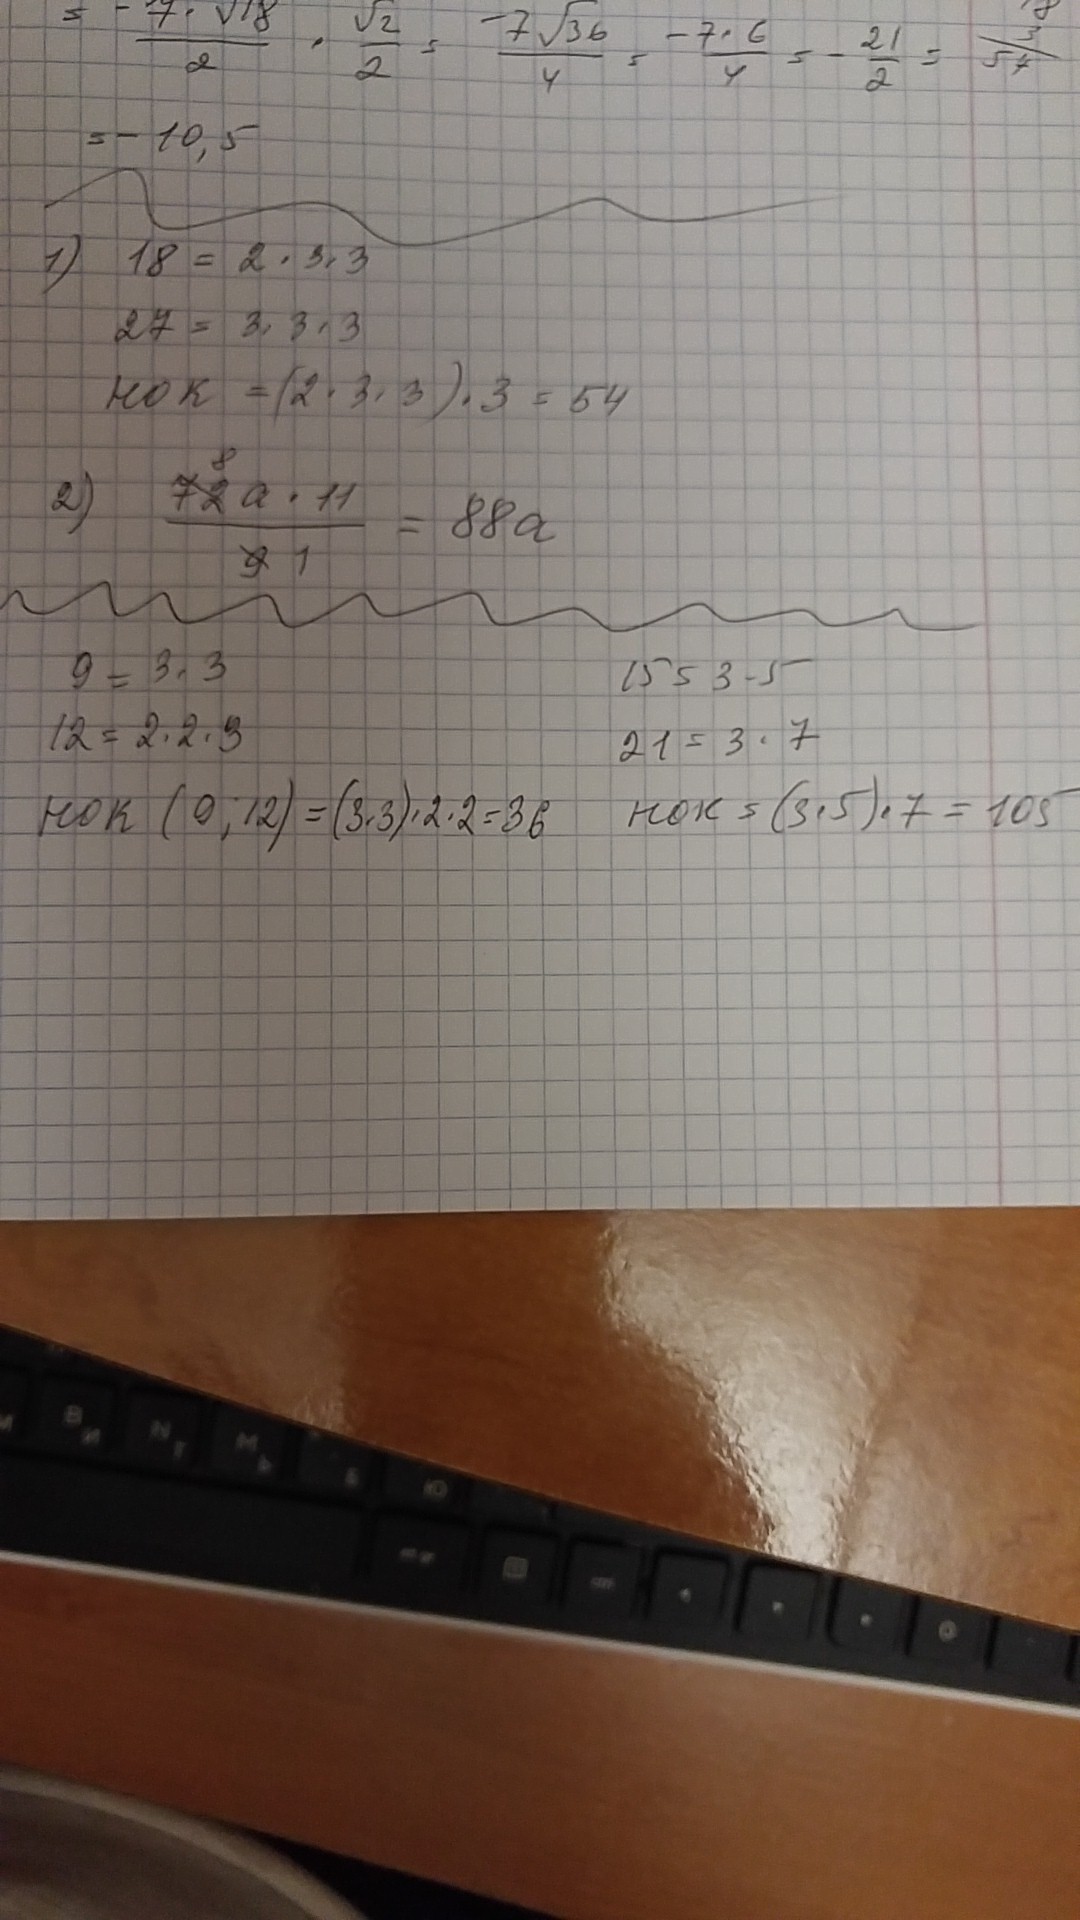 = - 7 · √18 / 2 · √2 / 2 = -7√36 / 4 = -7 · 6 / 4 = - 21 / 2 =
= - 10,5
1) 18 = 2 · 3 · 3
27 = 3 · 3 · 3
НОК = (2 · 3 · 3) · 3 = 54
8
2) 72a · 11 / 9 1 = 88a
9 = 3 · 3
12 = 2 · 2 · 3
НОК (9; 12) = (3·3)·2·2 = 36
15 = 3 · 5
21 = 3 · 7
НОК = (3·5)·7 = 105
В И
N Т
М Ь
Б
Ю